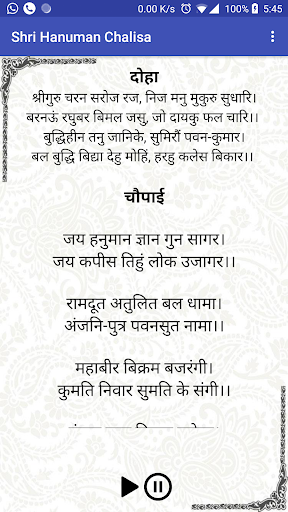 0.00 K/s 5:45
Shri Hanuman Chalisa
दोहा
श्रीगुरु चरन सरोज रज, निज मनु मुकुरु सुधारि।
बरनऊं रघुबर बिमल जसु, जो दायकु फल चारि।।
बुद्धिहीन तनु जानिके, सुमिरौं पवन-कुमार।
बल बुद्धि बिद्या देहु मोहिं, हरहु कलेस बिकार।।
चौपाई
जय हनुमान ज्ञान गुन सागर।
जय कपीस तिहुं लोक उजागर।।
रामदूत अतुलित बल धामा।
अंजनि-पुत्र पवनसुत नामा।।
महाबीर बिक्रम बजरंगी।
कुमति निवार सुमति के संगी।।